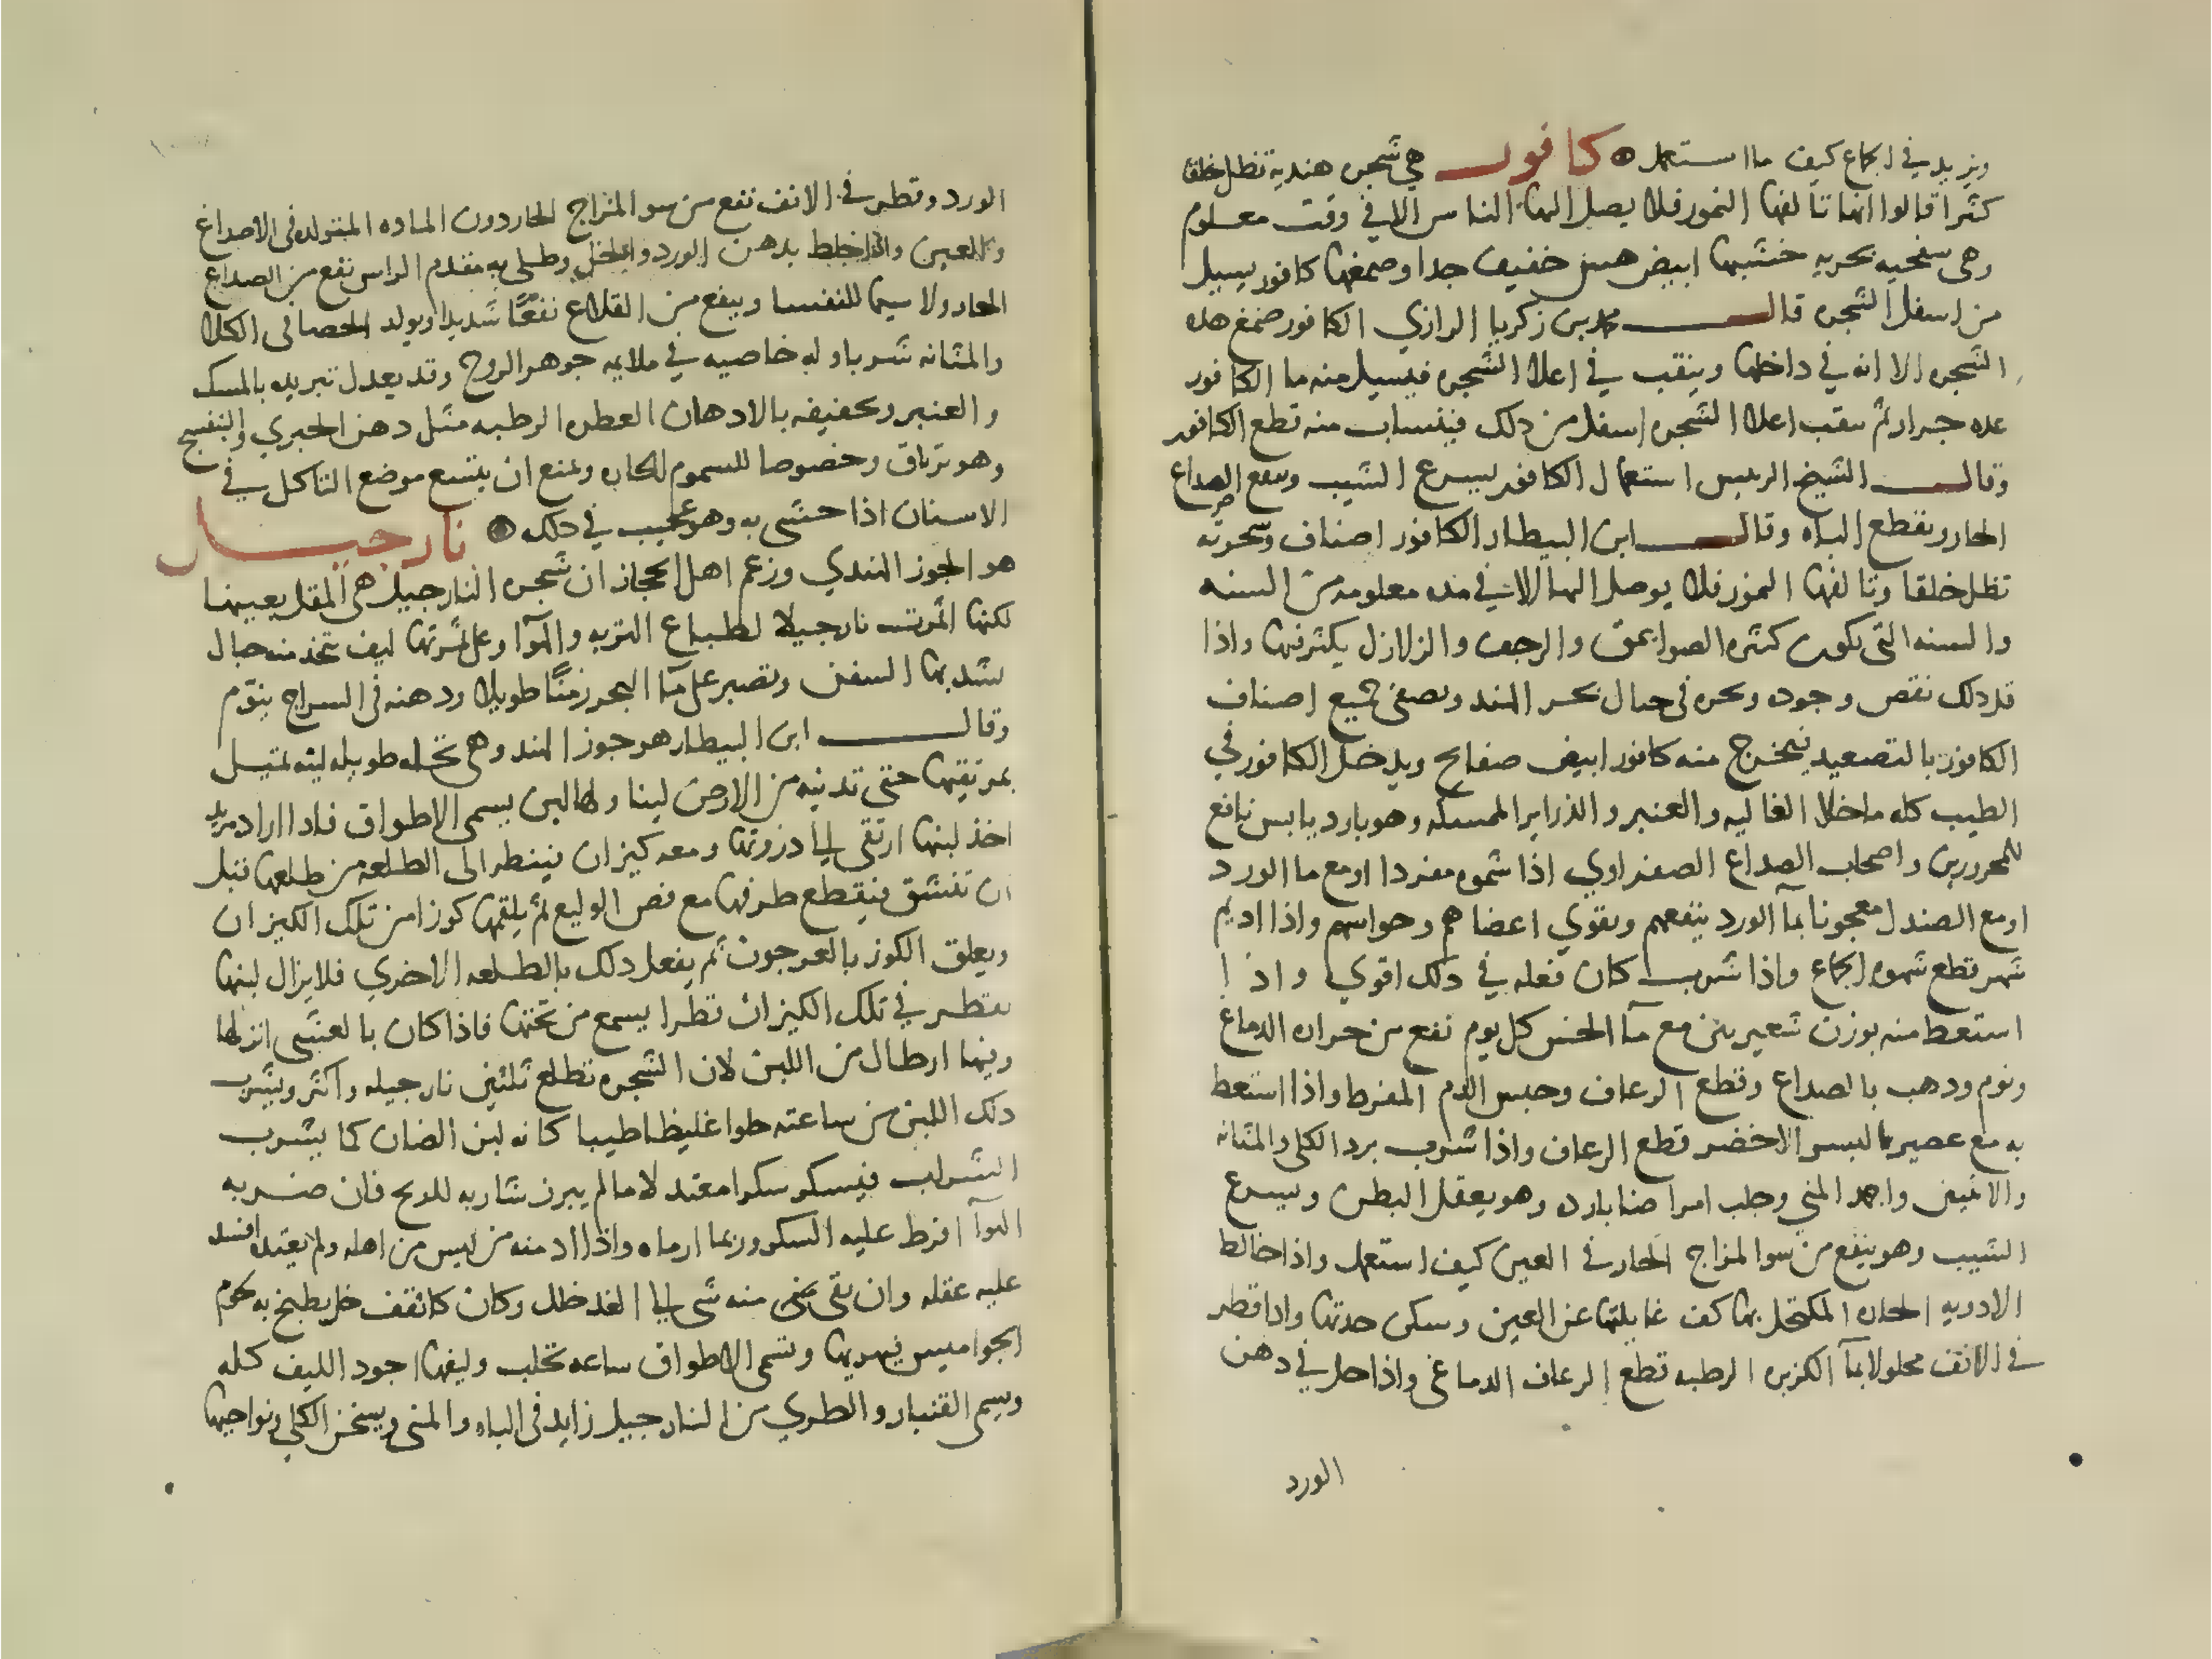 ويزيد في الجماع كيف ما استعمل كافور هي شجره هندية تظل خلقا
كثيرا قالوا انها تالفها النمور فلا يصل اليها الناس الا في وقت معلوم
وهي سفحيه بحريه خشبها ابيض هش خفيف جدا وصمغها كافور يسيل
من اسفل الشجره قال محمد بن زكريا الرازي الكافور صمغ هذه
الشجره الا انه في داخلها وينقب في اعلا الشجره فيسيل منه ما الكافور
عده جرار ثم ينقب اعلا الشجره اسفل من ذلك فينساب منه قطع الكافور
وقال الشيخ الرييس استعمال الكافور يسرع الشيب وينفع الصداع
الحار ويقطع الباه وقال ابن البيطار الكافور اصناف وشجرته
تظل خلقا وتالفها النمور فلا يوصل اليها الا في مده معلومه من السنه
والسنه التي يكون كثره الصواعق والرجف والزلازل يكثر فيها واذا
قل ذلك نقص وجوده وشجره في جبال بحر الهند ويصفى جميع اصناف
الكافور بالتصعيد فيخرج منه كافور ابيض صفايح ويدخل الكافور في
الطيب كله ما خلا الغاليه والعنبر والذراير الممسكه وهو بارد يابس نافع
للمحرورين واصحاب الصداع الصفراوي اذا شموه مفردا او مع ما الورد
او مع الصندل معجونا بمآ الورد ينفعهم ويقوي اعضاهم وحواسهم واذا اديم
شمه قطع شهوه الجماع واذا شرب كان فعله في ذلك اقوي واذا
استعط منه بوزن شعيرتين مع مآ الخس كل يوم نفع من حراره الدماغ
ونوم وذهب بالصداع وقطع الرعاف وحبس الدم المفرط واذا استعط
به مع عصير البسر الاخضر قطع الرعاف واذا شرب برد الكلى والمثانه
والانثيين واجمد المني وجلب امراضا بارده وهو يعقل البطن ويسرع
الشيب وهو ينفع من سو المزاج الحار في العين كيف استعمل واذا خالط
الادويه الحاره المكتحل بها كف غايلتها عن العين وسكن حدتها واذا قطر
في الانف محلولا بمآ الكزبره الرطبه قطع الرعاف الدماغي واذا حل في دهن
الورد
الورد وقطر في الانف نفع من سو المزاج الحار دون الماده المتولده في الاصداغ
والعين واذا خلط بدهن الورد والخل وطلي به مقدم الراس نفع من الصداع
الحار ولا سيما للنفسا وينفع من القلاع نفعًا شديدا ويولد الحصا في الكلا
والمثانه شربا وله خاصيه في ملايمه جوهر الروح وقد يعدل تبريده بالمسك
والعنبر وتجفيفه بالادهان العطره الرطبه مثل دهن الخيري والبنفسج
وهو ترياق وخصوصا للسموم الحاره ويمنع ان يتسع موضع التاكل في
الاسنان اذا حشي به وهو عجيب في ذلك نارجيل
هو الجوز الهندي وزعم اهل الحجاز ان شجره النارجيل هي المقل بعينها
لكنها اثمرت نارجيلا لطباع التربه والهوآ وعلى ثمرتها ليف تتخذ منه حبال
يشد بها السفن وتصبر على مآ البحر زمنًا طويلا ودهنه في السراج ينوم
وقال ابن البيطار هو جوز الهند وهي نخله طويله لينه تميل
بمرتقيها حتى تدنيه من الارض لينا ولها لبن يسمى الاطواق فاذا اراد مريد
اخذ لبنها ارتقى الى ذروتها ومعه كيزان فينظر الى الطلعه من طلعها قبل
ان تنشق فيقطع طرفها مع قص الوليع ثم يلقمها كوزا من تلك الكيزان
ويعلق الكوز بالعرجون ثم يفعل ذلك بالطلعه الاخري فلا يزال لبنها
يقطر في تلك الكيزان قطرا يسمع من تحتها فاذا كان بالعشي انزلها
وفيها ارطال من اللبن لان الشجره تطلع ثلثين نارجيله واكثر ويشرب
ذلك اللبن من ساعته حلوا غليظا طيبا كانه لبن الضان كما يشرب
الشراب فيسكر سكرا معتدلا ما لم يبرز شاربه للريح فان ضربه
الهوآ افرط عليه السكر وربما ارماه واذا ادمنه من ليس من اهله ولم يعتده افسد
عليه عقله وان بقي منه شي الى الغد خلل وكان كاثقف خل يطبخ به لحوم
الجواميس فيهريها وتسمى الاطواق ساعه تحلب وليفها اجود الليف كله
ويسمى القنبار والطري من النارجيل زايد في الباه والمنى ويسخن الكلي ونواحيها